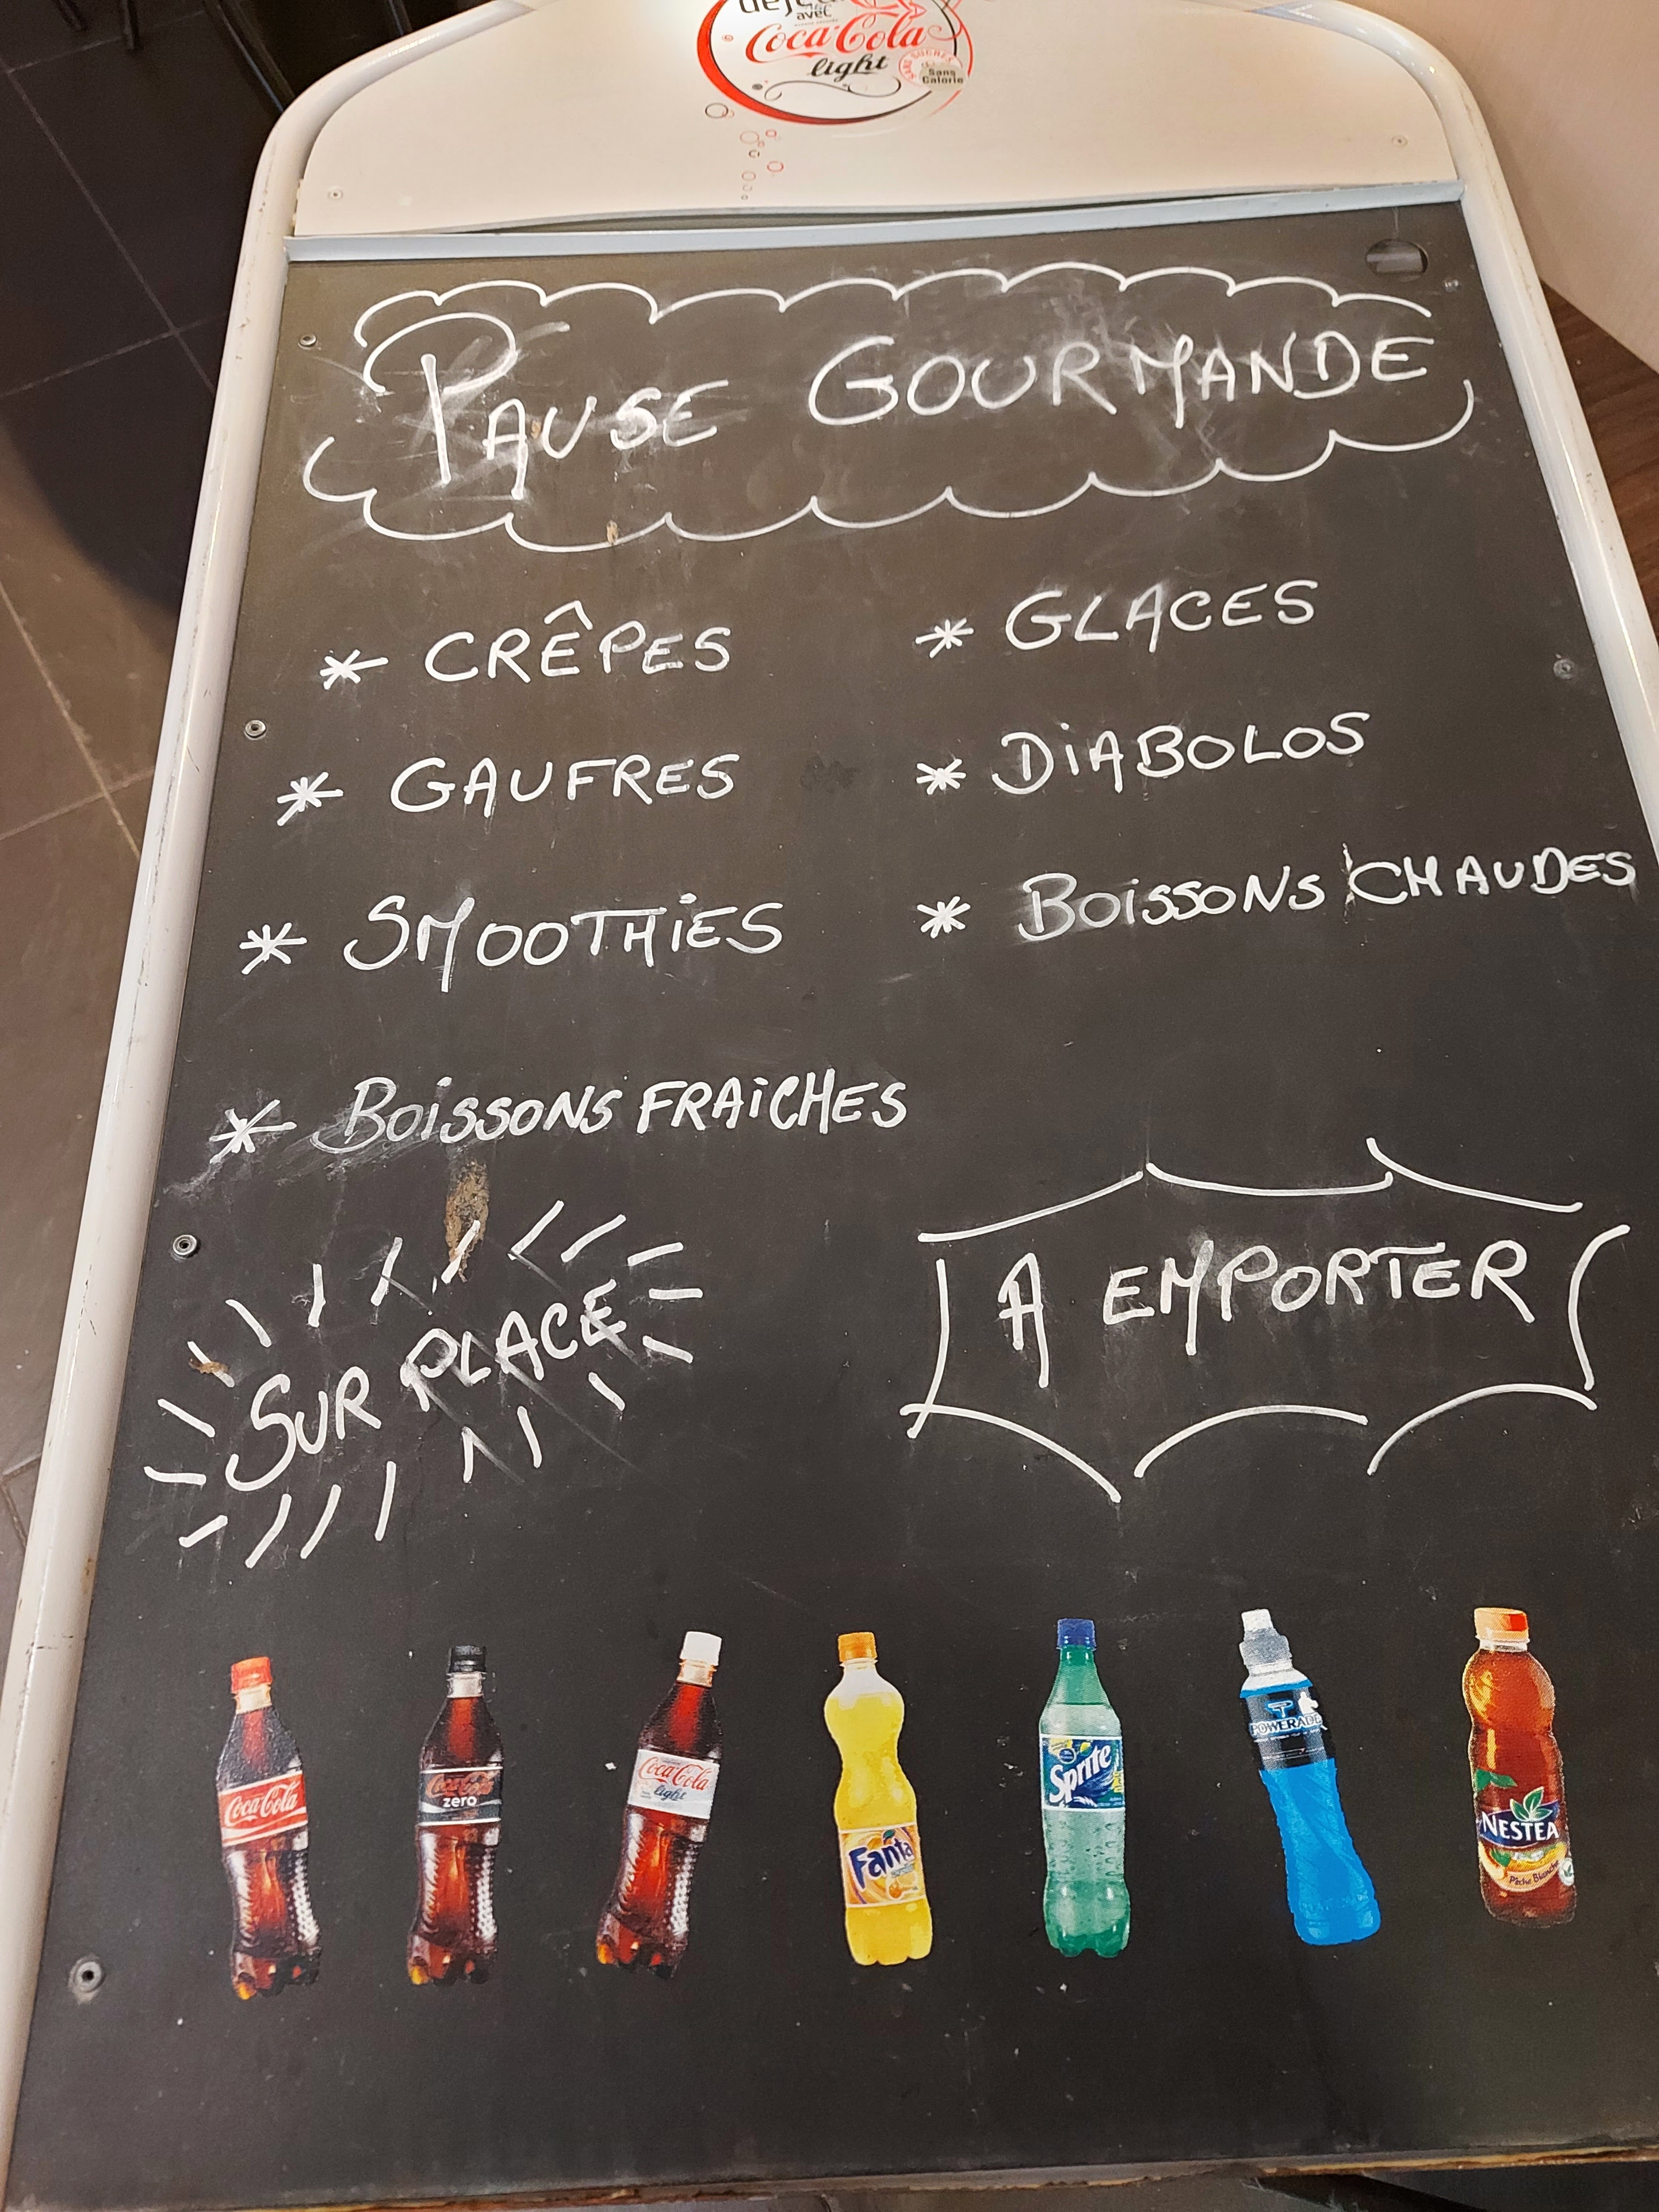 avec
Coca-Cola
light
Sans
Calorie
PAUSE GOURMANDE
* CRÊPES
* GLACES
* GAUFRES
* DiABOLOS
* SMOOTHiES
* BOiSSONS CHAUDES
* BOiSSONS FRAiCHES
SUR PLACE
A EMPORTER
Coca-Cola
Coca-Cola
zero
Coca-Cola
light
Fanta
Sprite
POWERADE
NESTEA
Pêche Blanche